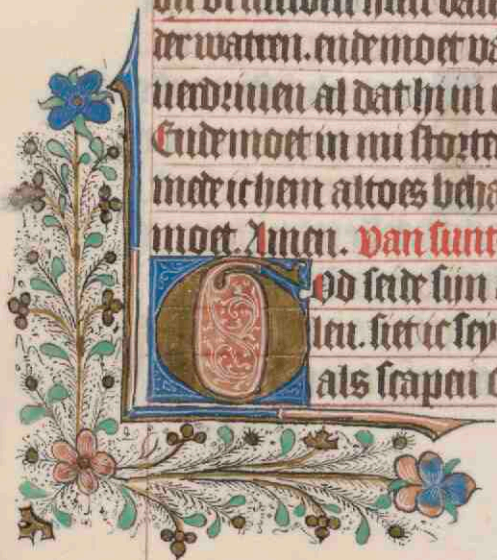 der watren. ende moet va
verdriuen al dat hi in
Ende moet in mi storte
mede ic hem altoes beha
moet. Amen. van sunt
God seide sijn
len. siet ic sey
als scapen